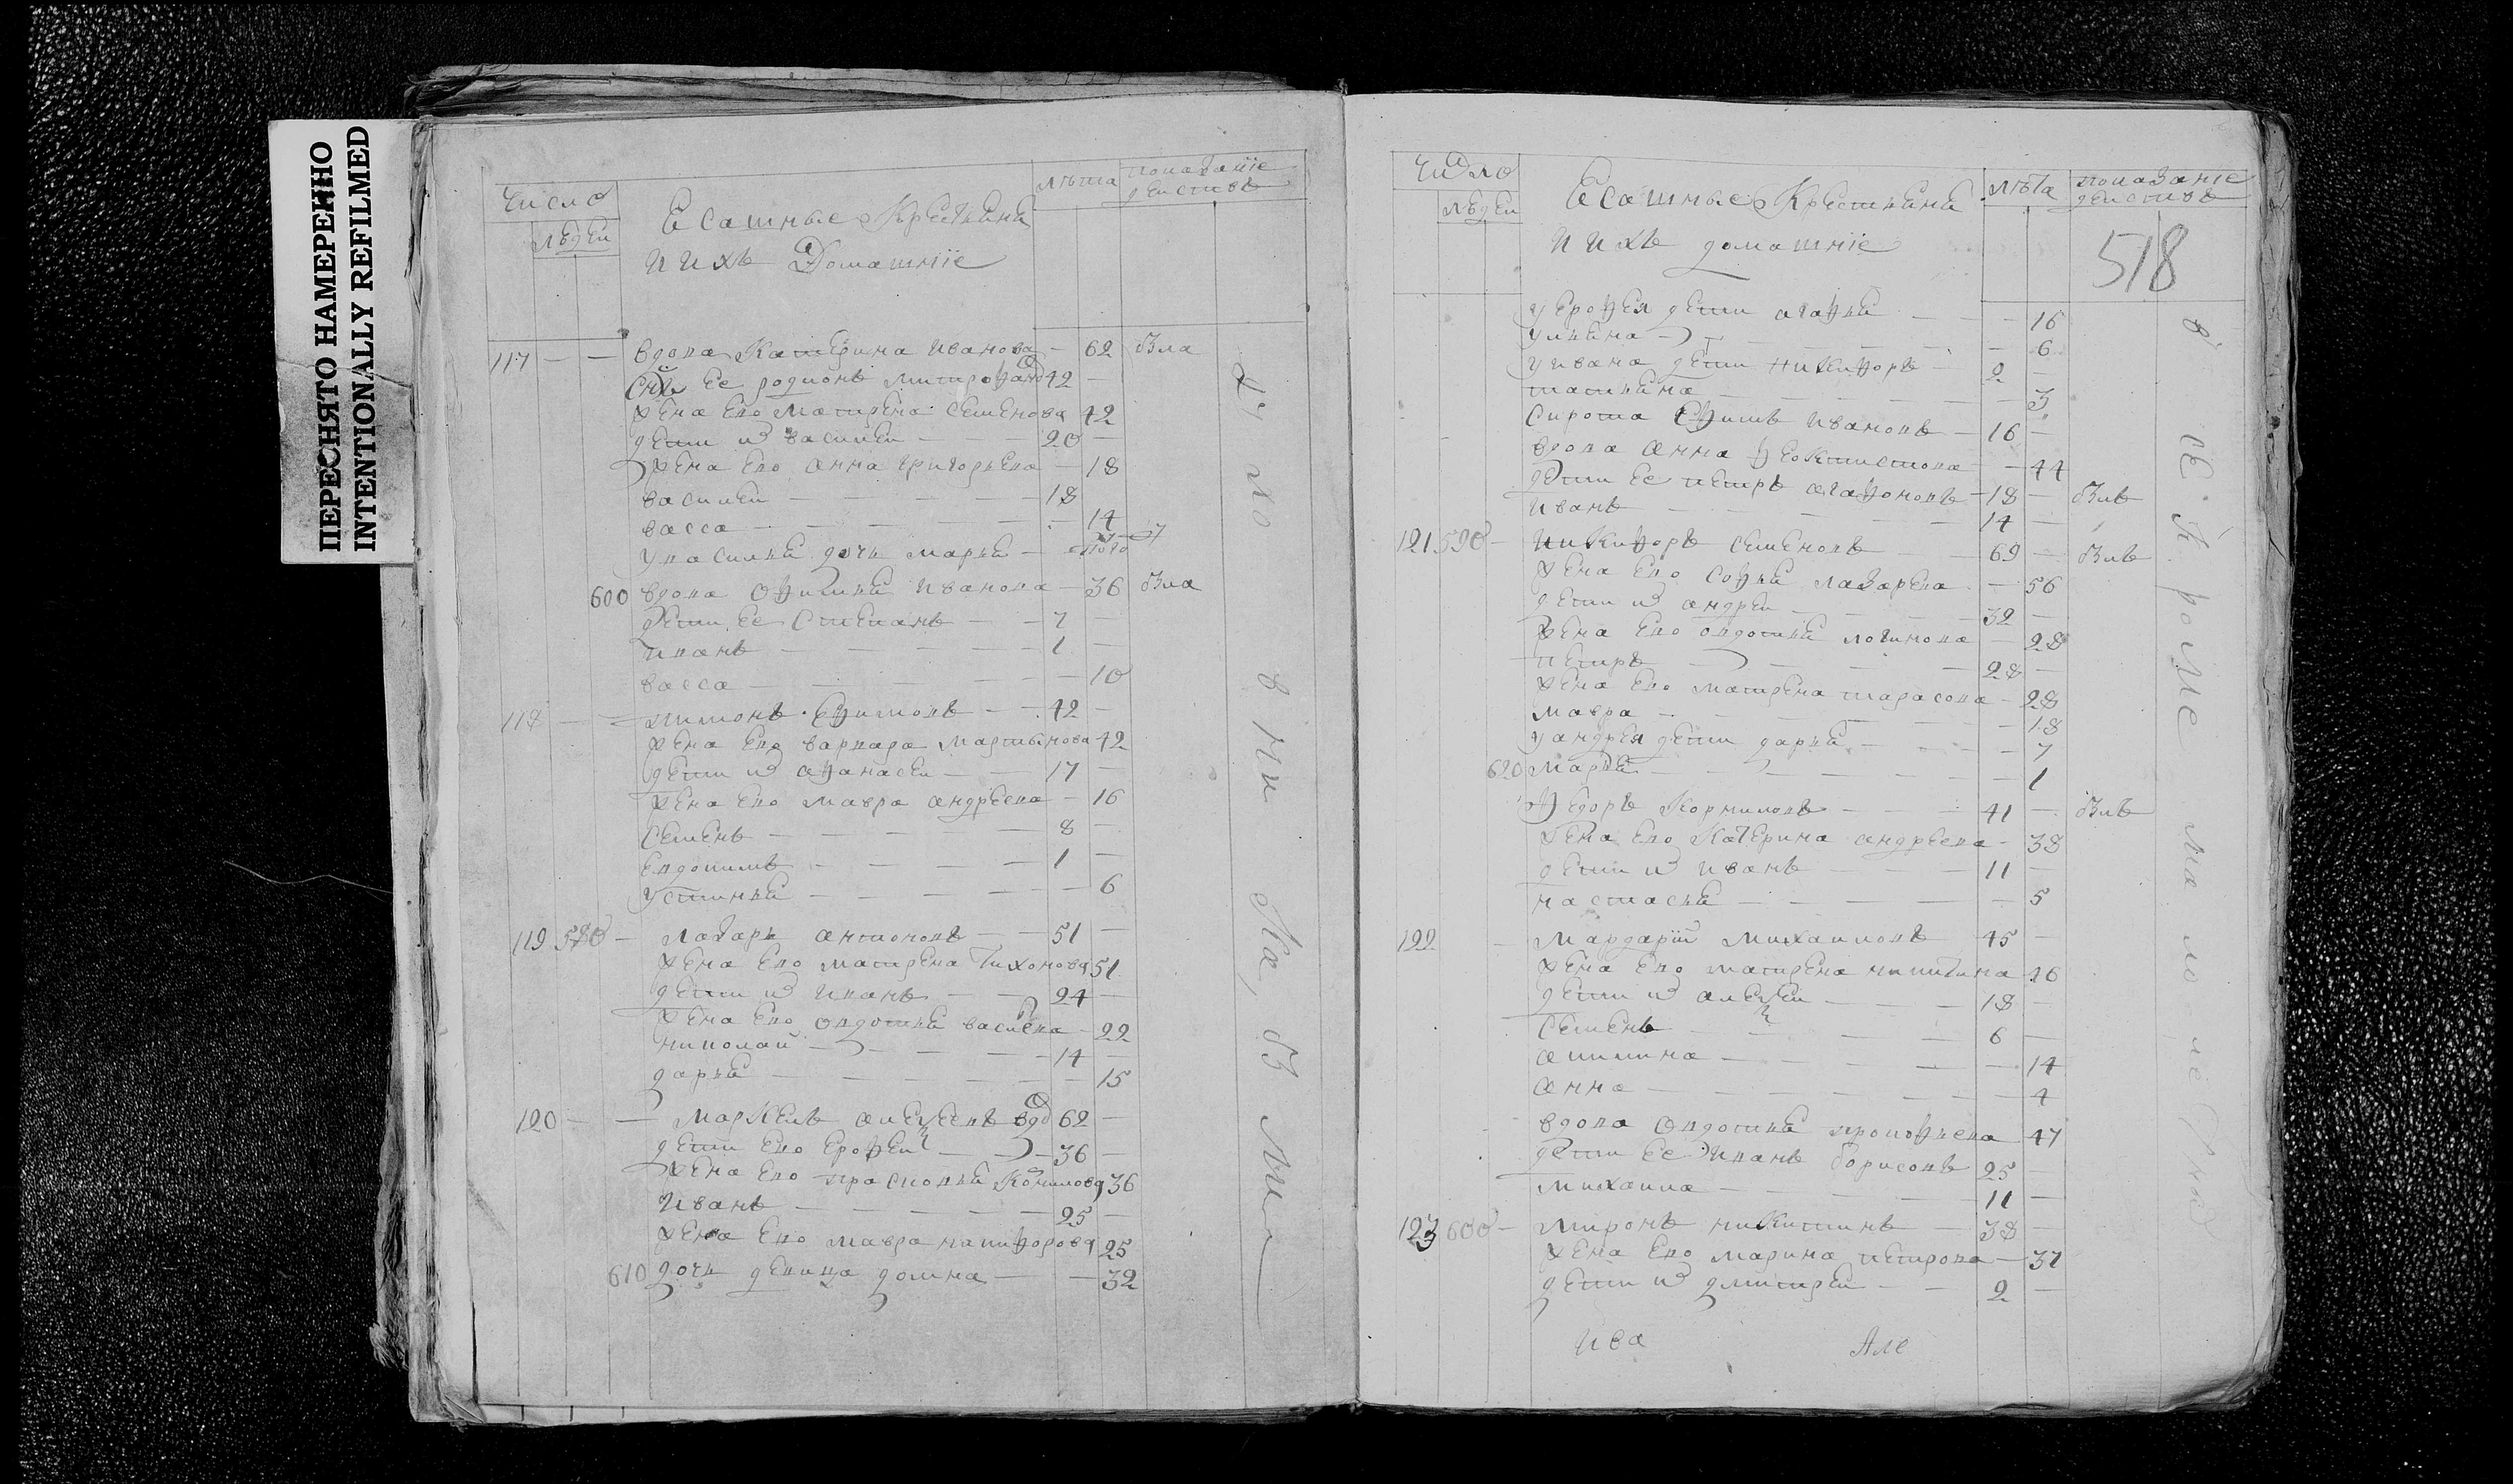 ПЕРЕСНЯТО НАМЕРЕННО
INTENTIONALLY REFILMED
Число
людеи
Есашные Крестьяня
и ихъ Домашніе
лѣта
показаніе
деиствъ
117 — — вдова Катерина Иванова — 62 бзла
снъ ее родионъ митрофано 42 —
жена ево матрена семенова 42
дети их василеи — 20 —
жена ево анна григорьева — 18
василеи — 18
васса — 14
у василья дочь марья —
600 вдова офимья Иванова — 36 бзла
дети ее Степанъ — 7 —
иванъ — 1 —
васса — 10
118 — — Филимонъ Ефимовъ — 42 —
жена ево варвара мартынова 42
дети их афанасеи — 17 —
жена ево мавра андреева — 16
Семенъ — 8 —
Евдокимъ — 1 —
устинья — 6
119 580 — лазарь антоновъ — 51 —
жена ево матрена Тихонова 51
дети их иванъ — 24 —
жена ево овдотья васиева — 22
николаи — 14 —
дарья — 15
120 — — Маркелъ алексеевъ вдо 62 —
дети ево Ерофеи — 36 —
жена ево прасковья Конилова 36
Иванъ — 25 —
жена ево мавра никифорова 25
610 дочь девица домна — 32
Число
людеи
Есашные Крестьяня
и ихъ домашніе
лѣта
показаніе
деиствъ
518
у Ерофея дети агафья — 16
ульяна — 6
у ивана дети никифоръ — 2 —
татьяна — 3
сирота Ефимъ Ивановъ — 16 —
вдова анна феоктистова — 44
дети ее петръ агафоновъ — 18 — бзлъ
иванъ — 14 —
121 590 — Никифоръ семеновъ — 69 — бзлъ
жена ево софья лазарева — 56
дети их андреи — 32 —
жена ево овдотья логинова — 28
петръ — 28 —
жена ево матрена тарасова — 28
мавра — 18
у андрея дети дарья — 7
620 Марья — 1
федоръ Корниловъ — 41 — бзлъ
жена ево Катерина андреева — 38
дети их иванъ — 11 —
настасья — 5
122 — Мардарій михаиловъ 45 —
жена ево матрена никитина 46
дети их алексеи — 18 —
Семенъ — 6 —
акилина — 14
анна — 4
вдова Овдотья прокофьева 47
дети ее Иванъ борисовъ 25 —
михаила — 11 —
123 600 — миронъ никитинъ — 38 —
жена ево марина петрова — 37
дети их дмитреи — 2 —
ива Але